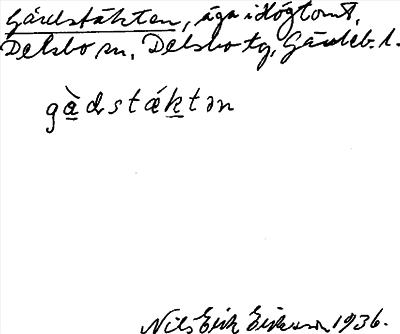 Gårdstäkten, äga i Högtomt,
Delsbo sn, Delsbo tg, Gävleb. l.
gàdstáktən
Nils Erik Eriksson 1936.